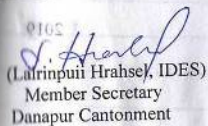 2019
(Lalrinpuii Hrahsel, IDES)
Member Secretary
Danapur Cantonment